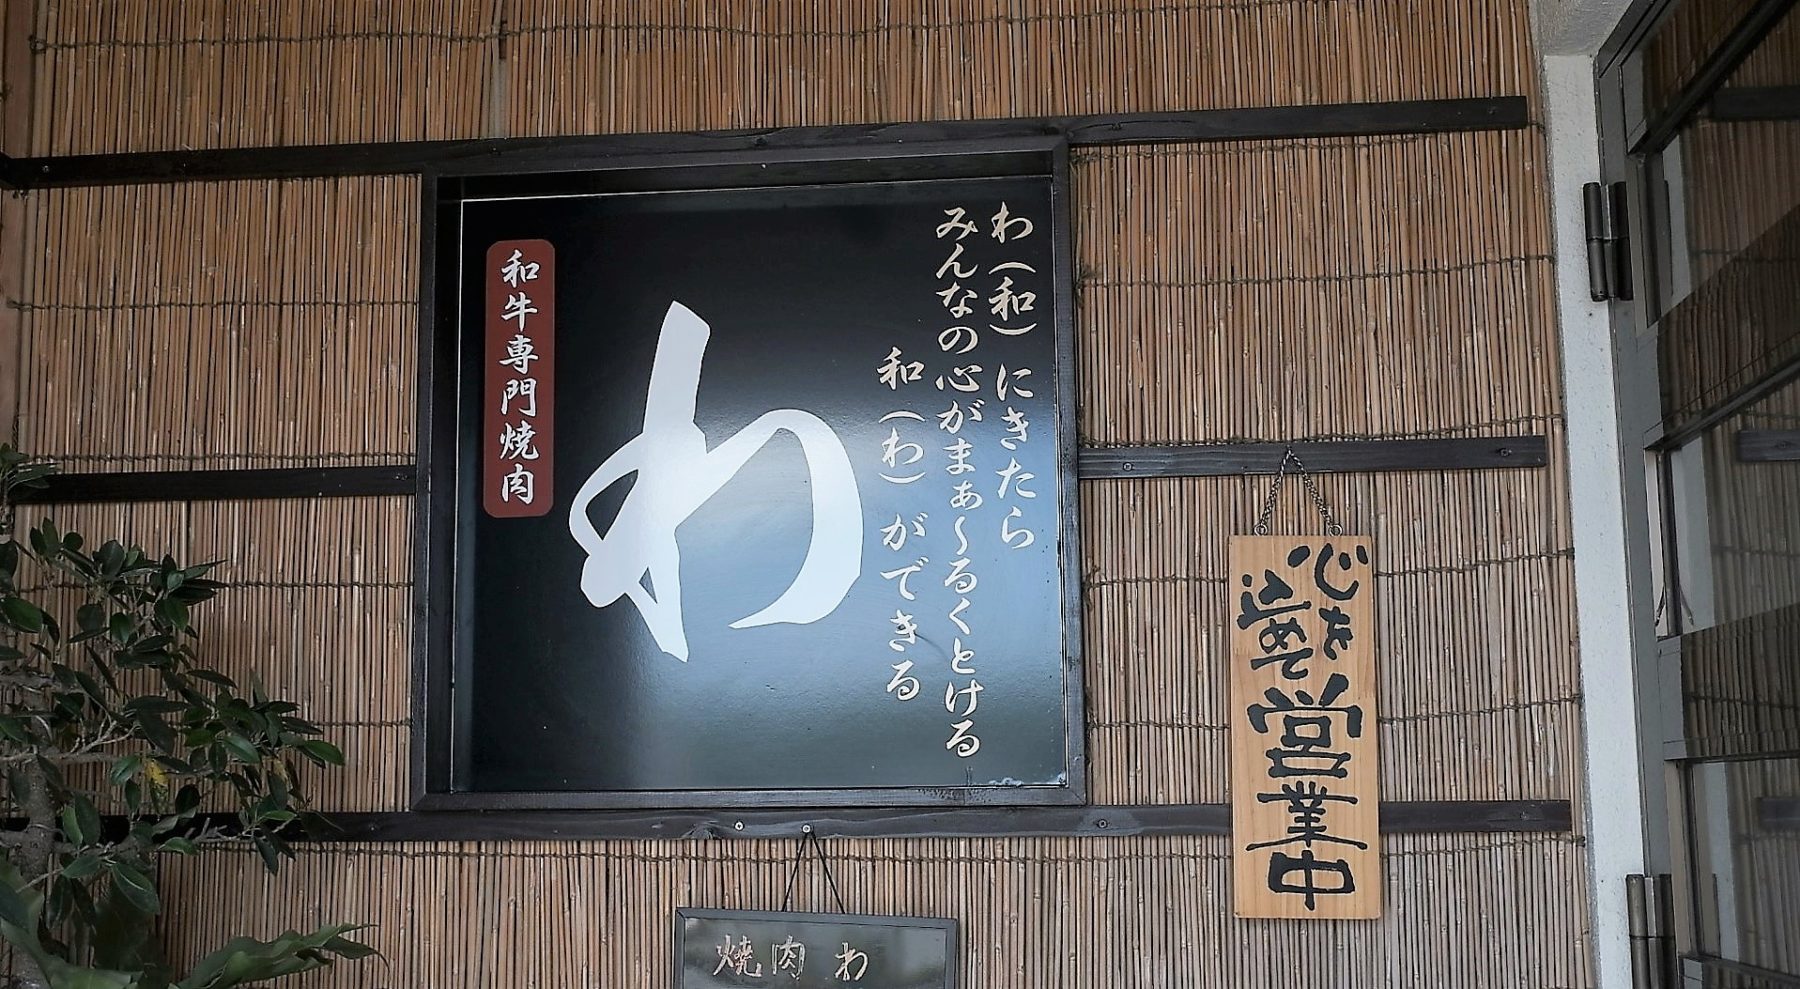 わ（和）にきたら
みんなの心がまぁ～るくとける
和（わ）ができる
わ
和牛専門焼肉
心を
込めて
営業中
焼肉 わ